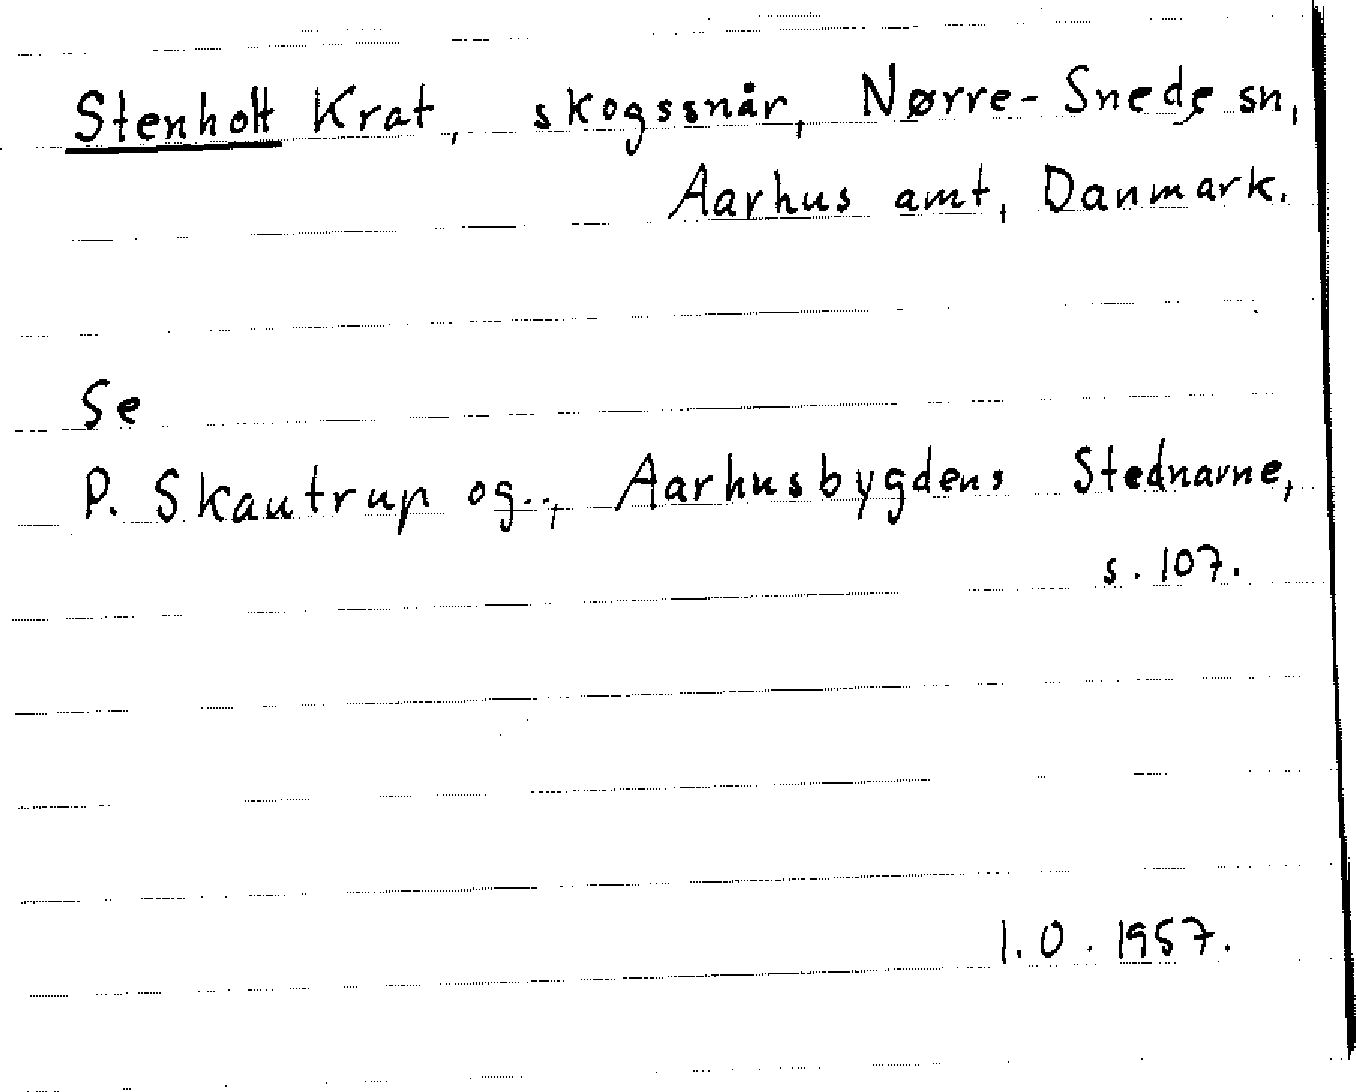 Stenholt Krat, skogssnår, Nørre-Snede sn,
Aarhus amt, Danmark.
Se
P. Skautrup og.., Aarhusbygdens Stednavne,
s. 107.
I.O. 1957.